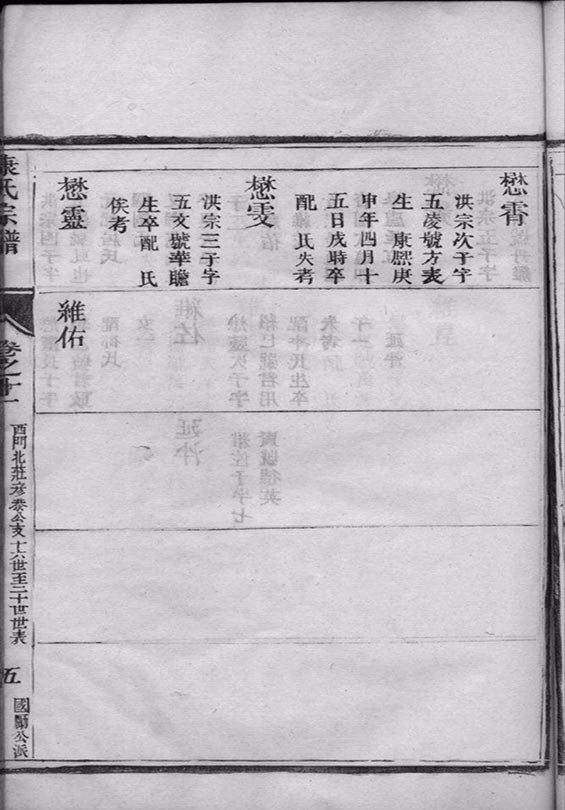 懋霄
洪宗次子字
五凌號方表
生 康熙庚
申年四月十
五日戌時卒
配 氏失考
懋雯
洪宗三子字
五文號華瞻
生卒配 氏
俟考
懋靈
維佑
康氏宗譜
卷之十一
西門北莊彦泰公支十六世至二十世世表
五
國顯公派